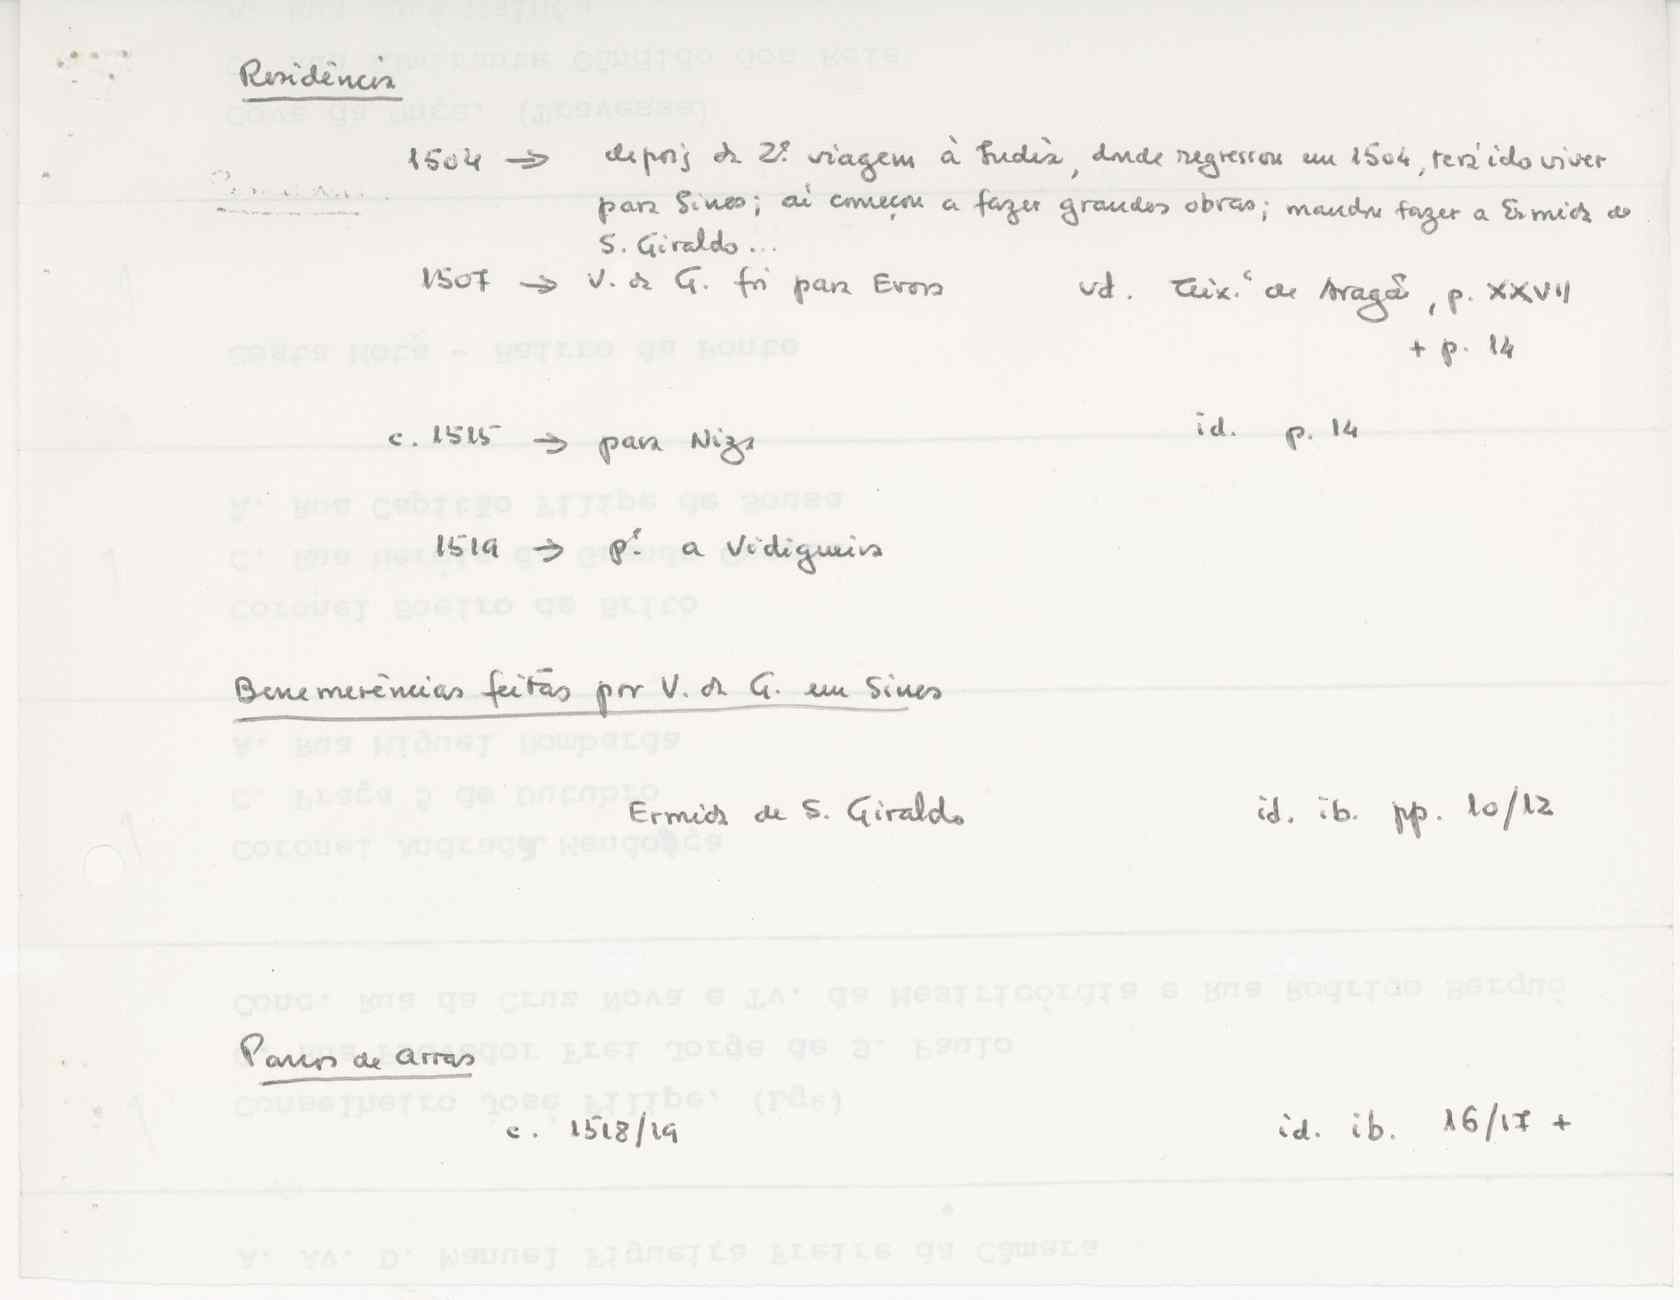 Residência
1504 → depois da 2ª viagem à Índia, donde regressou em 1504, terá ido viver
para Sines; aí começou a fazer grandes obras; mandou fazer a Ermida de
S. Giraldo...
1507 → V. da G. foi para Evora vd. Teix.ª de Aragão, p. XXVII
+ p. 14
c. 1515 → para Niza id. p. 14
1519 → p.ª a Vidigueira
Benemerências feitas por V. da G. em Sines
Ermida de S. Giraldo id. ib. pp. 10/12
Panos de arras
c. 1518/19 id. ib. 16/17 +